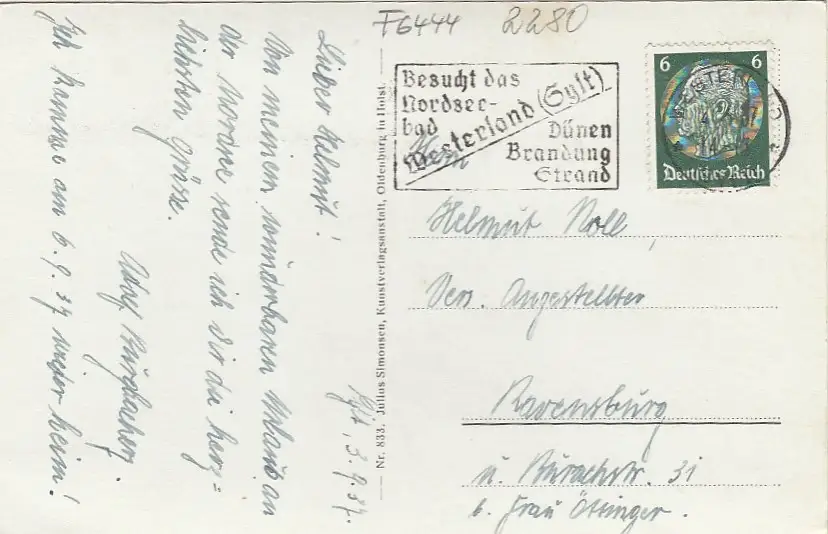 F6444 2280
Besucht das
Nordsee-
bad
Westerland (Sylt)
Dünen
Brandung
Strand
6 6
Deutsches Reich
Sylt, 3.9.37.
Lieber Helmut!
Von meinem wunderbaren Urlaub an
der Nordsee sende ich dir die herz-
lichsten Grüsse.
Adolf
Ich komme am 6.9.37 wieder heim!
Nr. 833. Julius Simonsen, Kunstverlagsanstalt, Oldenburg in Holst.
Herrn
Helmut Noll,
Vers. Angestellter
Ravensburg
u. Burachstr. 31
b. Frau Öttinger.